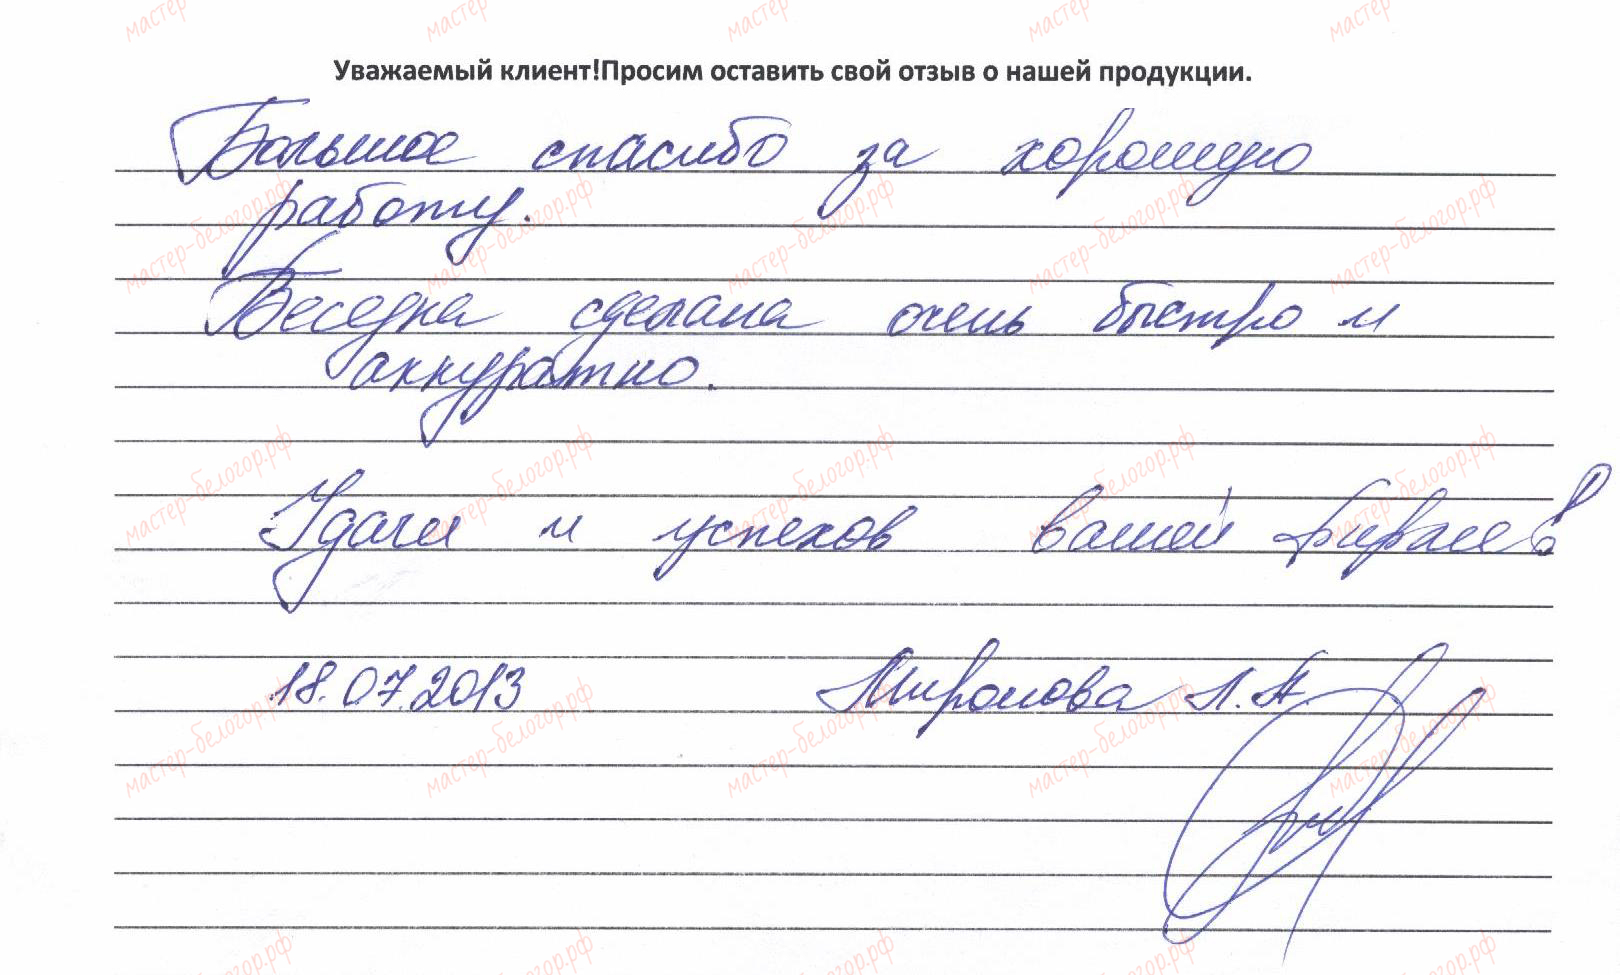 Уважаемый клиент!Просим оставить свой отзыв о нашей продукции.
Большое спасибо за хорошую
работу.
Беседка сделана очень быстро и
аккуратно.
Удачи и успехов вашей фирме!
18.07.2013 Миронова Л.А.
мастер-белогор.рф